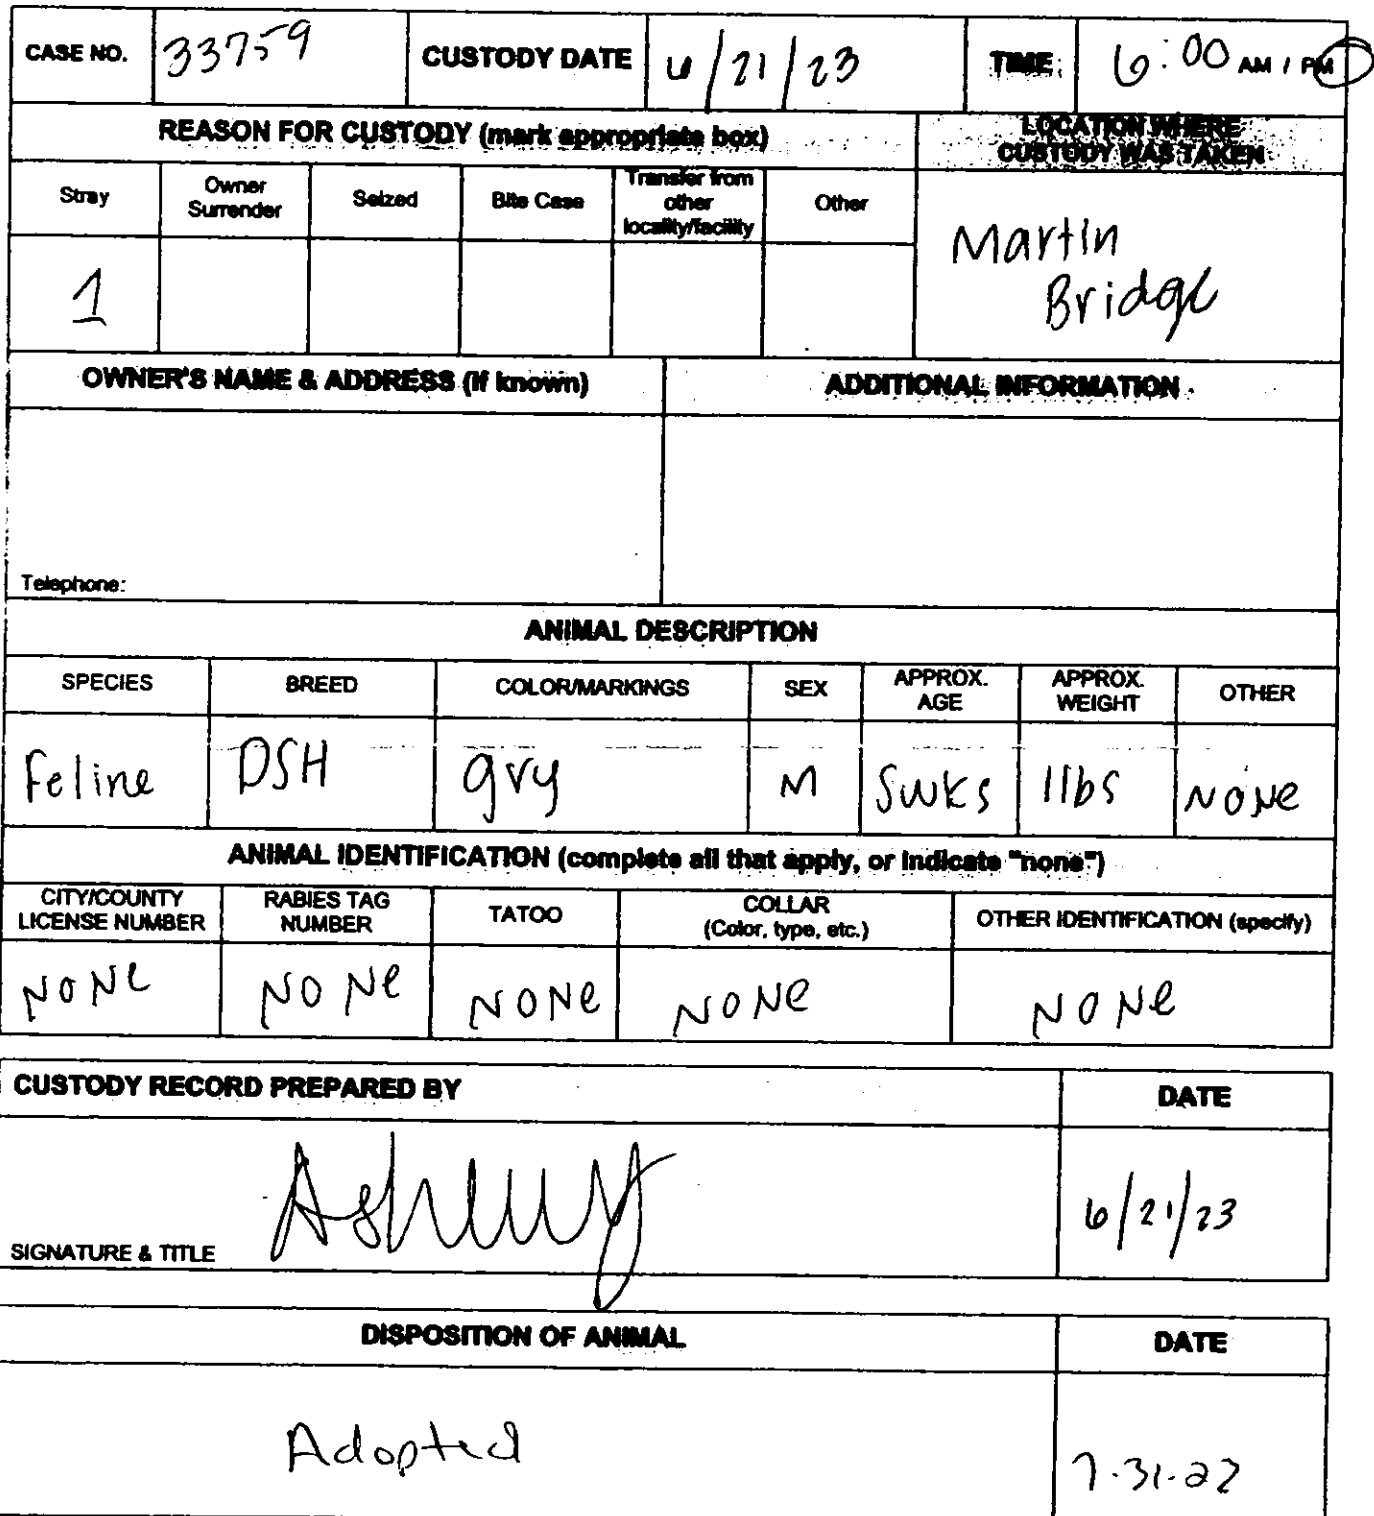 CASE NO. 33759 CUSTODY DATE 6/21/23 TIME: 6:00 AM / PM
REASON FOR CUSTODY (mark appropriate box)
LOCATION WHERE
CUSTODY WAS TAKEN
Stray
Owner
Surrender
Seized
Bite Case
Transfer from
other
locality/facility
Other
1
Martin
Bridge
OWNER'S NAME & ADDRESS (if known)
ADDITIONAL INFORMATION
Telephone:
ANIMAL DESCRIPTION
SPECIES BREED COLOR/MARKINGS SEX
APPROX.
AGE
APPROX.
WEIGHT
OTHER
Feline DSH gry M 5wks 1lbs NONe
ANIMAL IDENTIFICATION (complete all that apply, or indicate "none")
CITY/COUNTY
LICENSE NUMBER
RABIES TAG
NUMBER
TATOO
COLLAR
(Color, type, etc.)
OTHER IDENTIFICATION (specify)
NONe NONe NONe NONe NONe
CUSTODY RECORD PREPARED BY DATE
SIGNATURE & TITLE 6/21/23
DISPOSITION OF ANIMAL DATE
Adopted